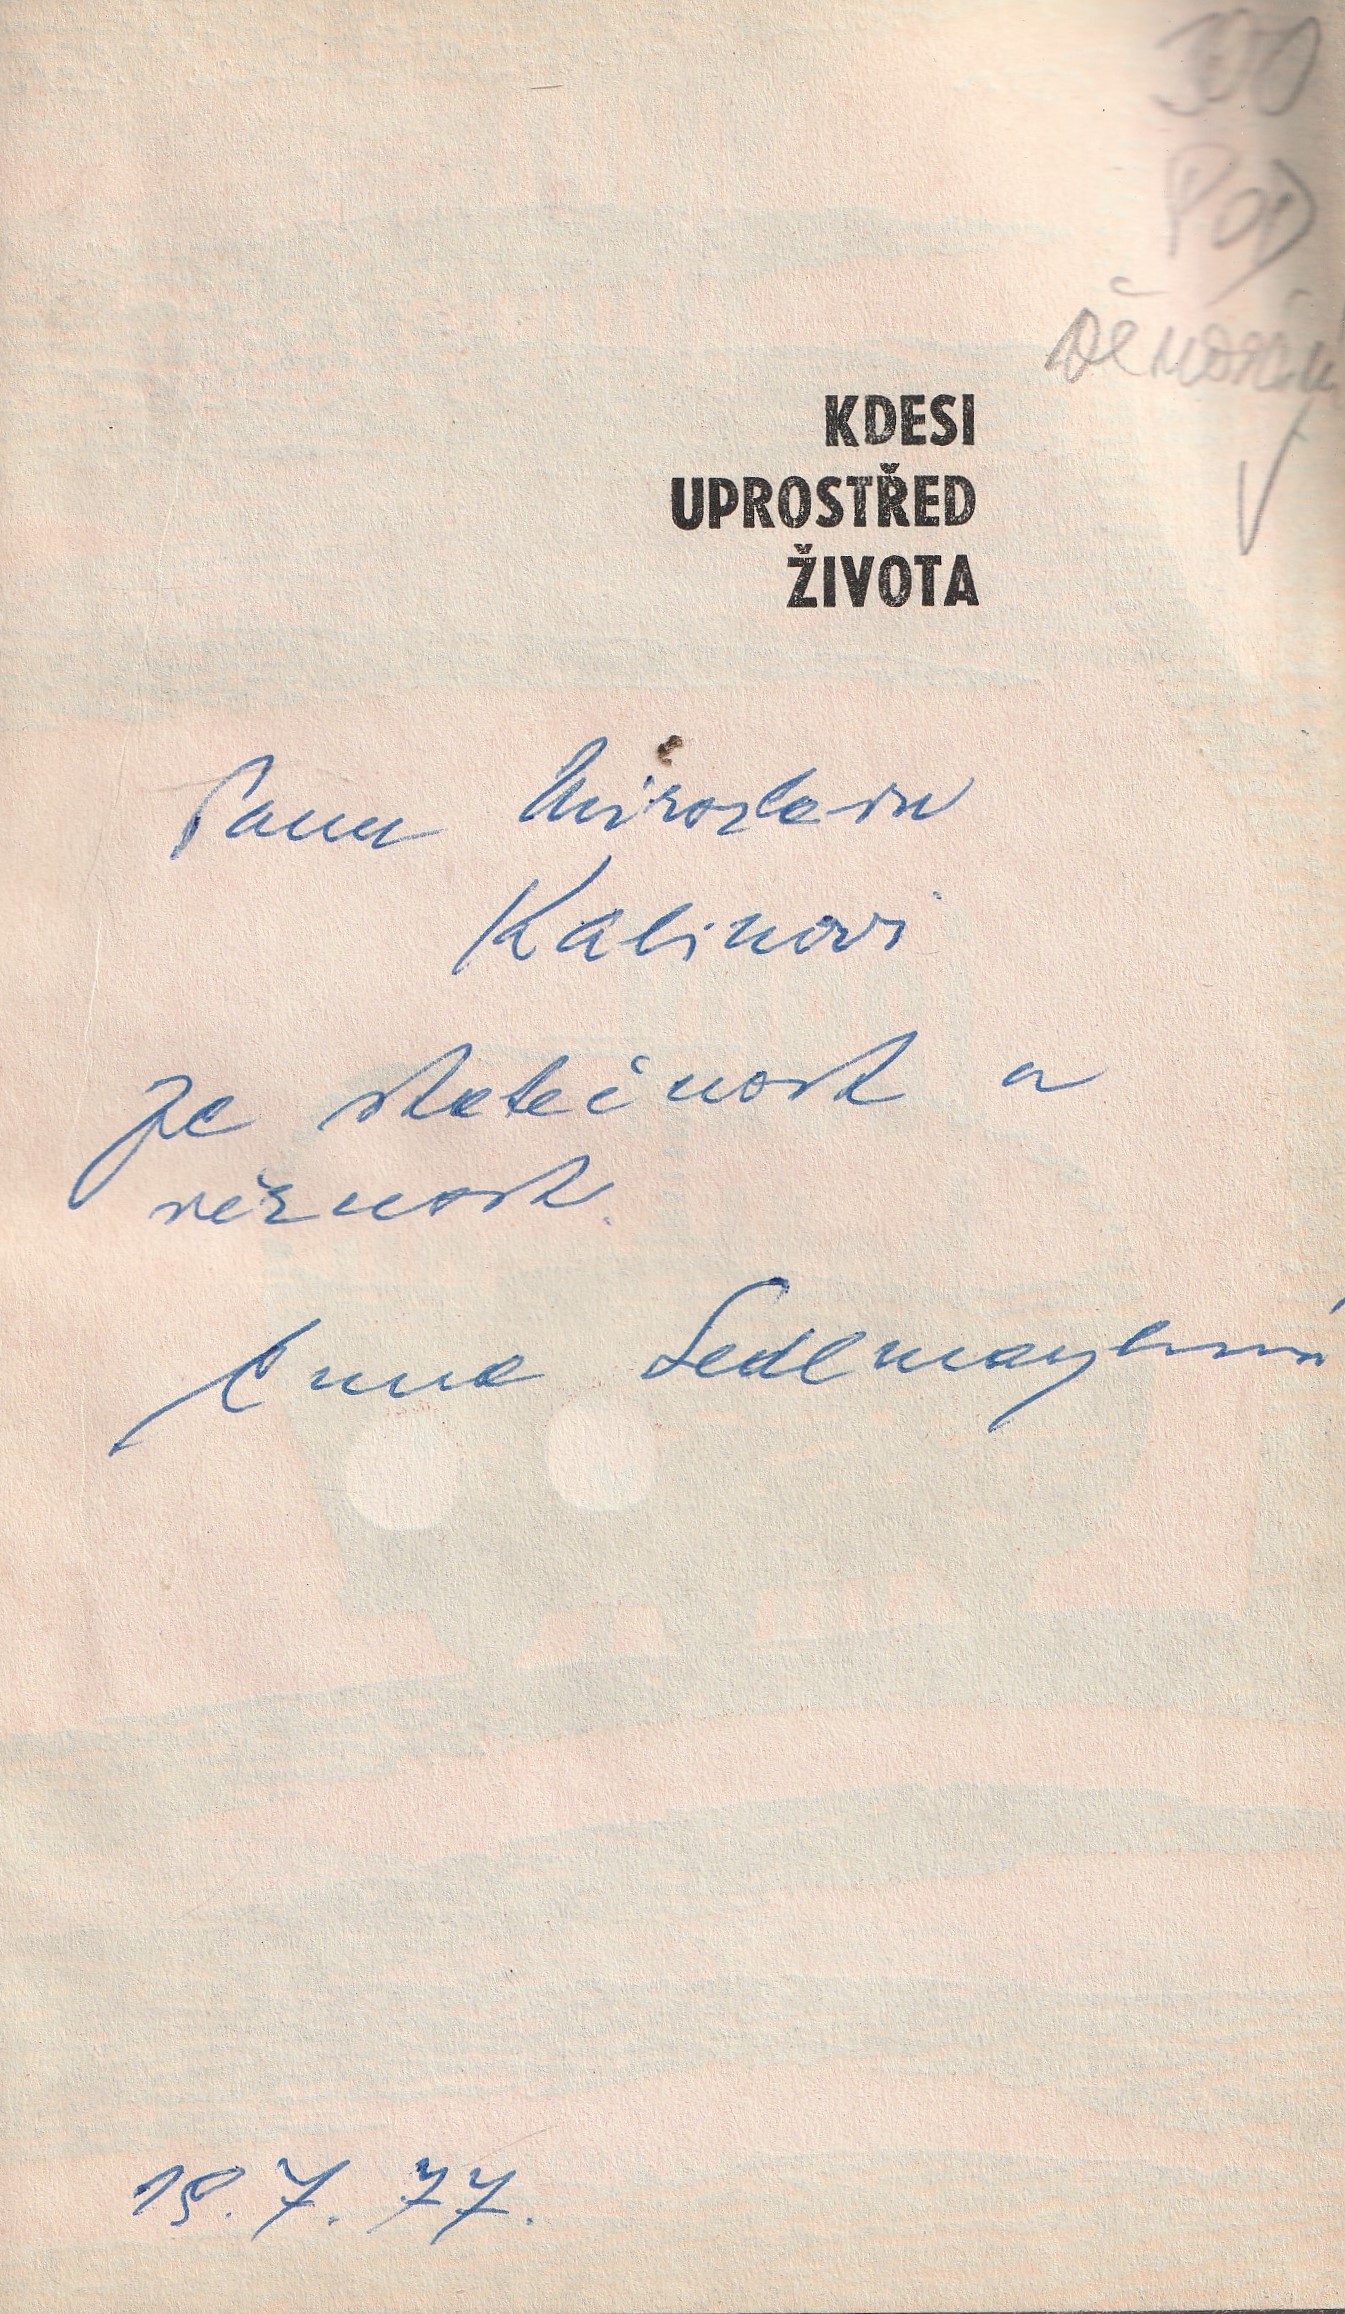 300
POD
věnování
KDESI
UPROSTŘED
ŽIVOTA
Panu Miroslavu
Kalinovi
za statečnost a
věrnost.
Anna Sedlmayerová
18. 7. 77.